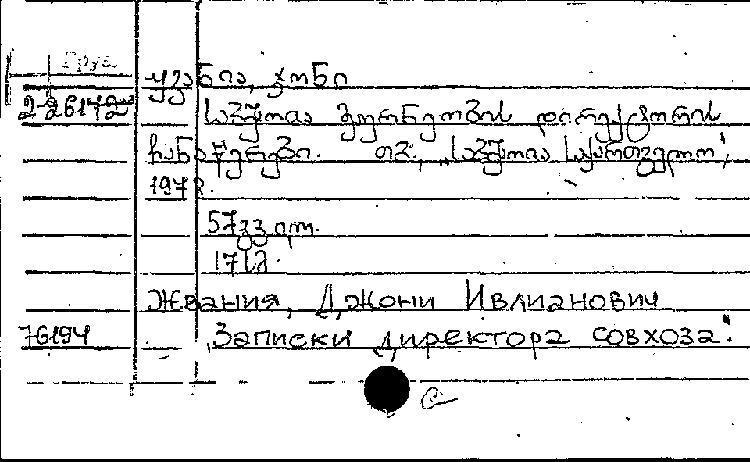 Груз
ჟვანია, ჯონი
2-26172
საბჭოთა მეურნეობის დირექტორის
ჩანაწერები. თბ., „საბჭოთა საქართველო",
1972.
57 გვ.
17 სმ.
Жвания, Джони Ивлианович
76194
„Записки директора совхоза".